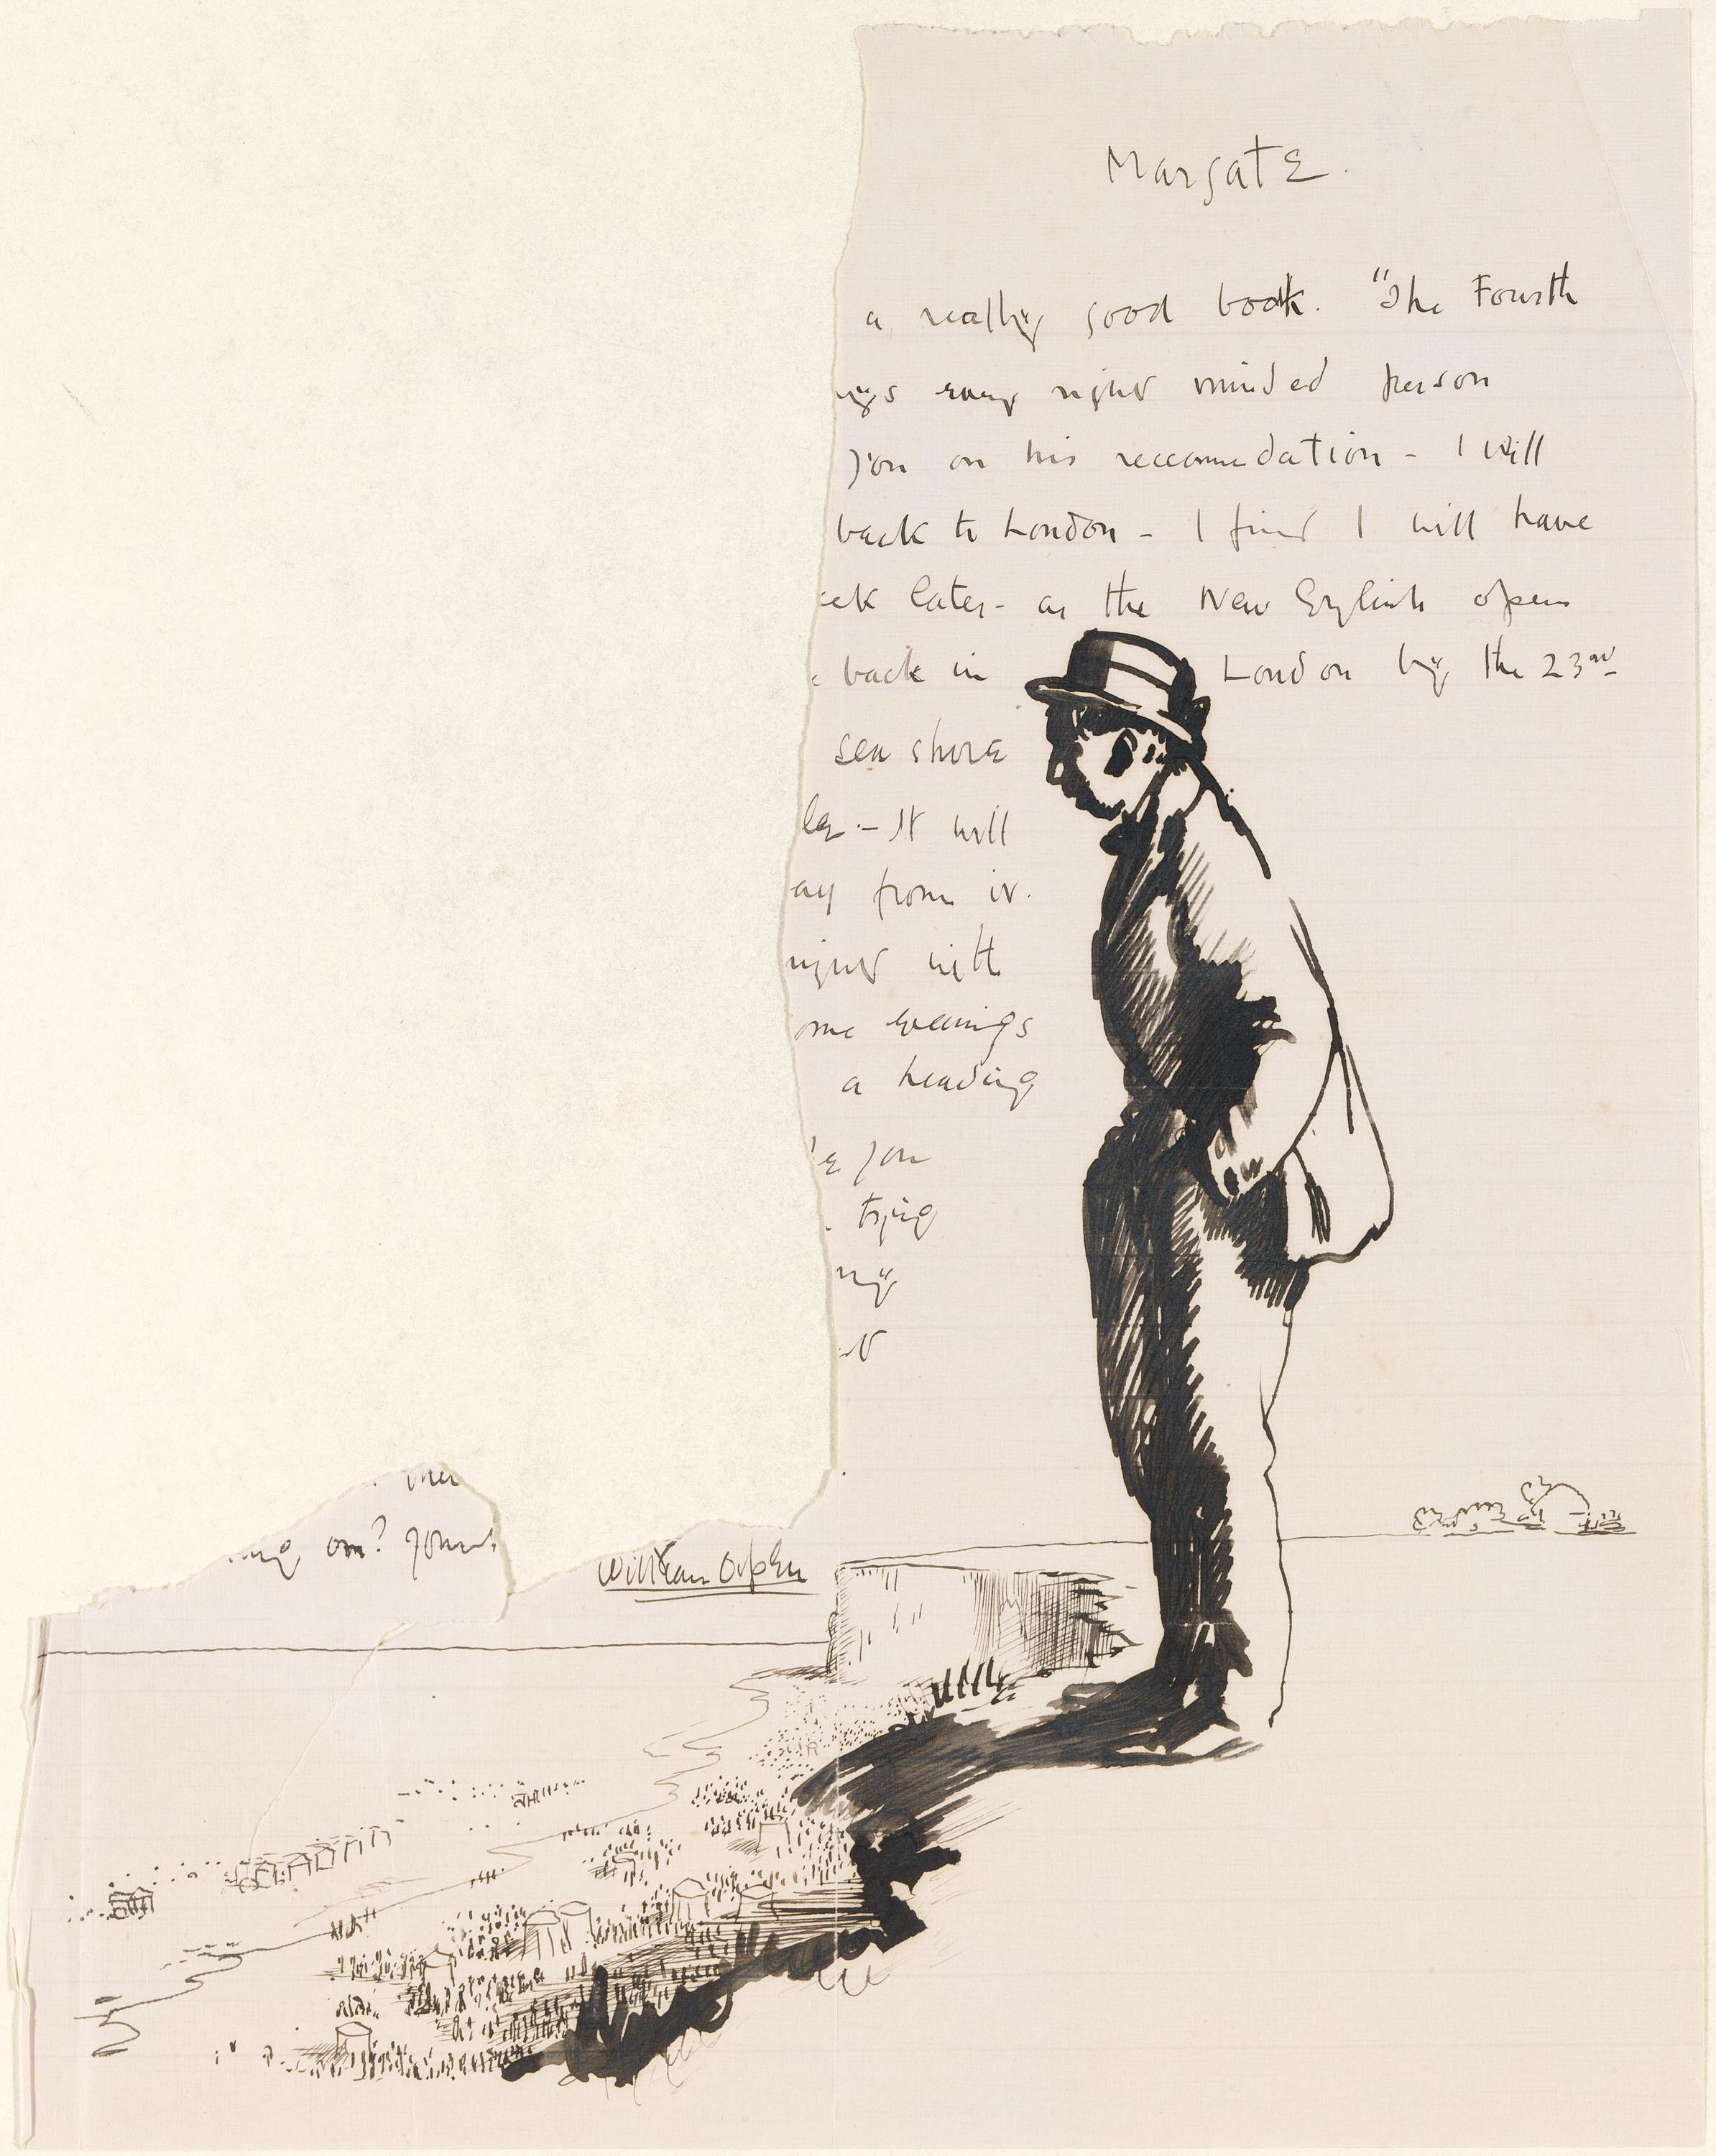 Margate.
a really good book. "The Fourth
every right minded person
on his reccomedation - I will
back to London - I find I will have
later - as the New English opens
back in London by the 23rd
sea shore
- It will
from it.
with
evenings
a heading
you
trying
my
on? Yours
William Orpen